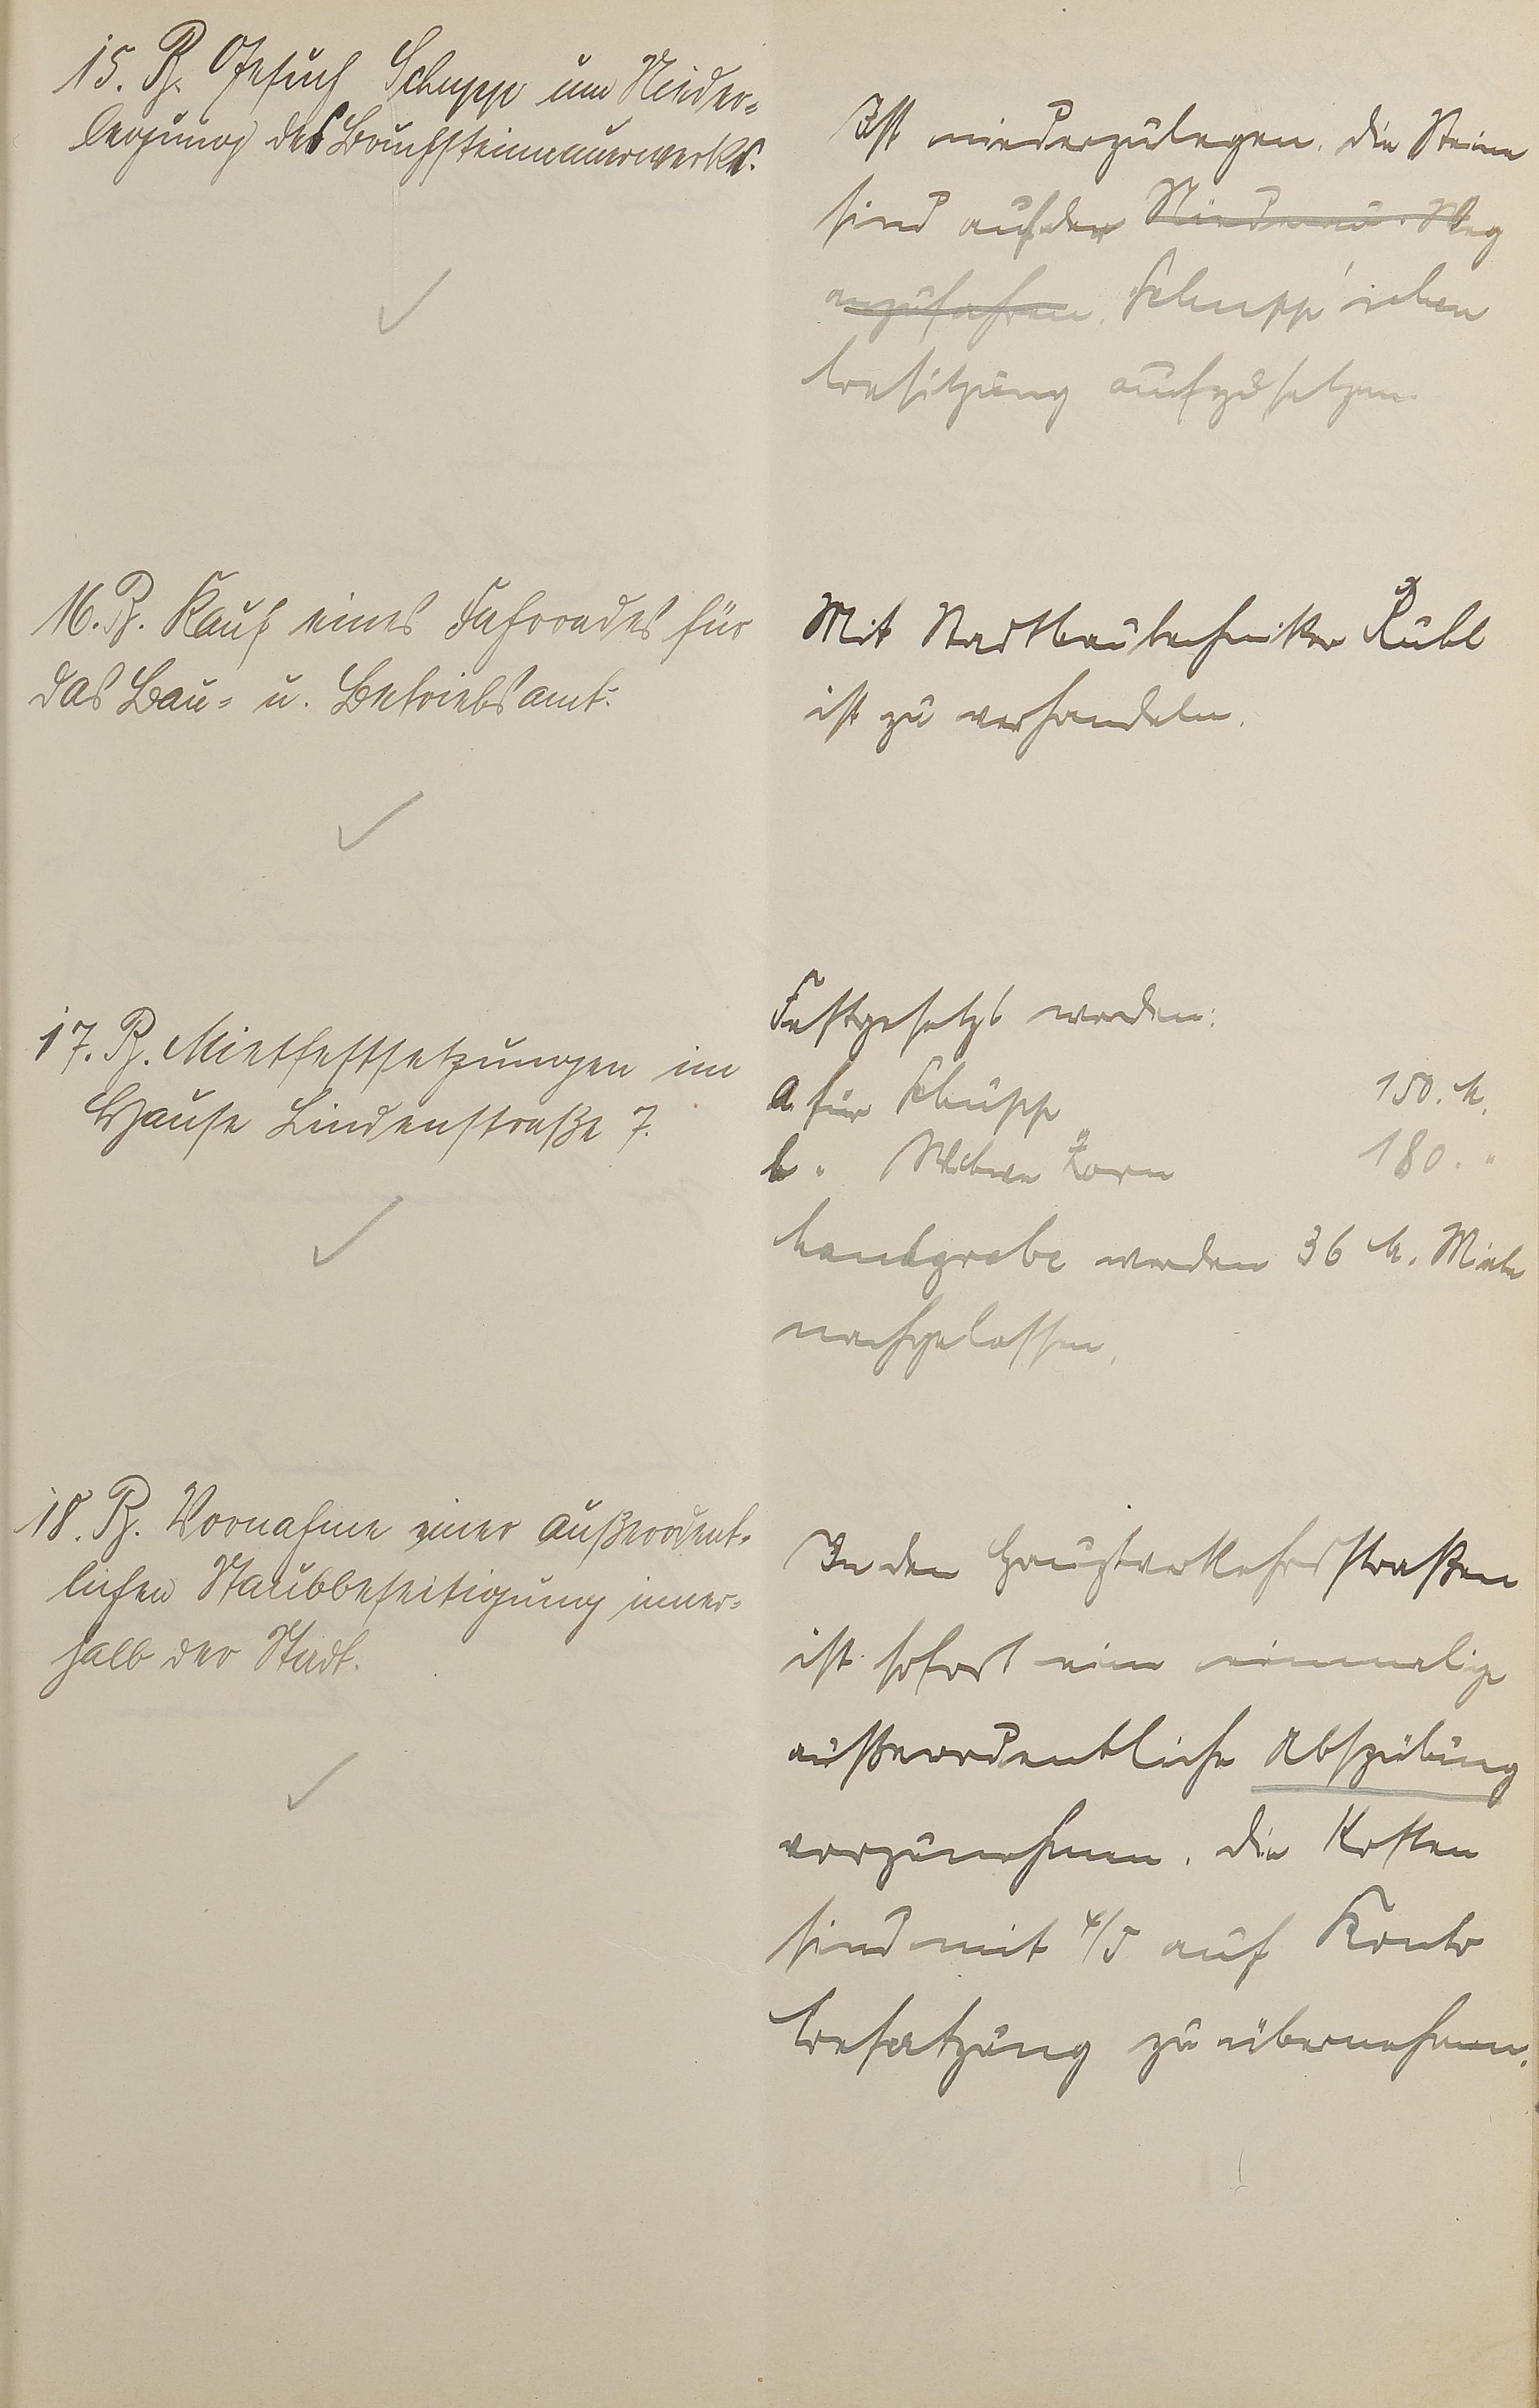 15. B. Gesuch Schupp um Nieder-
legung des Bruchsteinmauerwerks.
Ist niederzulegen. Die Steine
sind auf der Niederau. Weg
anzufahren. Schupp'schen
Besitzung aufzusetzen.
16. B. Kauf eines Fahrrades für
das Bau- u. Betriebsamt.
Mit Stadtbautechniker Rübl
ist zu verhandeln.
17. B. Mietfestsetzungen im
Hause Lindenstraße 7.
Festgesetzt werden:
a. für Schupp 150. M.
b. " Witwe Zorn 180. "
werden 36 M. Miete
nachgelassen.
18. B. Vornahme einer außerordent-
lichen Staubbeseitigung inner-
halb der Stadt.
In den Hauptverkehrsstraßen
ist sofort eine einmalige
außerordentliche Abspülung
vorzunehmen. Die Kosten
sind mit 4/5 auf Konto
Besatzung zu übernehmen.